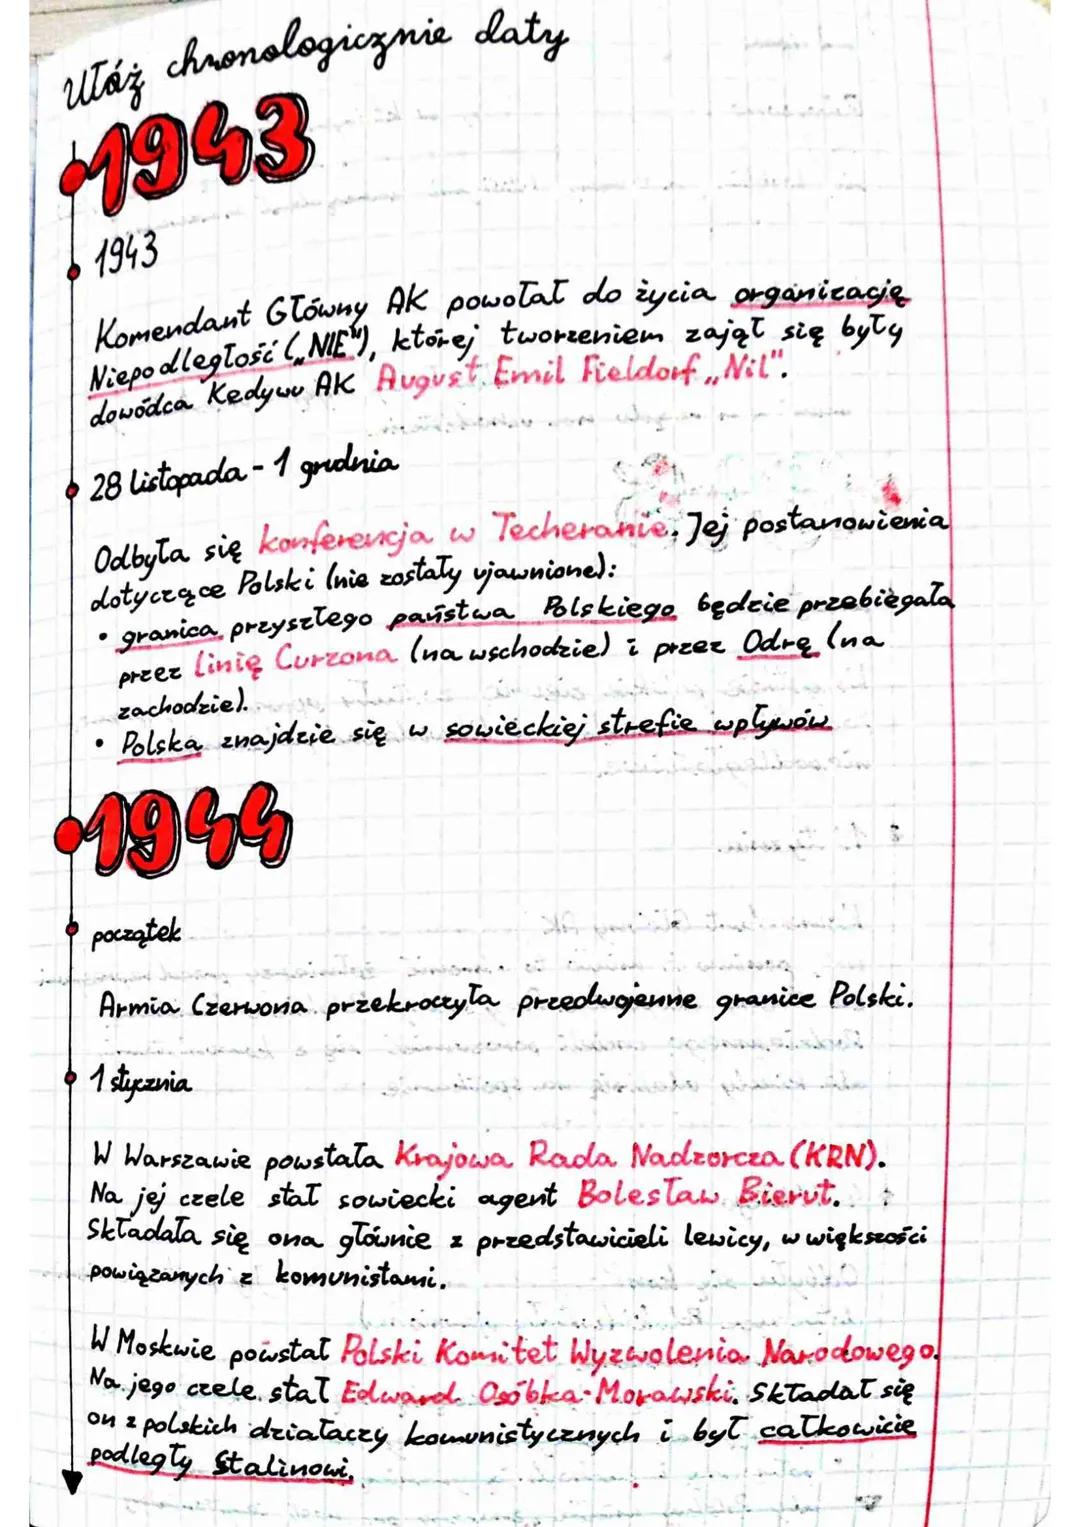 Ułóż chronologicznie daty
1943
1943
Komendant Główny AK powołał do życia organizację
Niepodległość („NIE"), której tworzeniem zajął się były
dowódca Kedywu AK August Emil Fieldorf „Nil".
28 listopada - 1 grudnia
Odbyła się konferencja w Techeranie. Jej postanowienia
dotyczące Polski (nie zostały ujawnione):
• granica przyszłego państwa Polskiego będzie przebiegała
przez linię Curzona (na wschodzie) i przez Odrę (na
zachodzie).
• Polska znajdzie się w sowieckiej strefie wpływów
1944
początek
Armia Czerwona przekroczyła przedwojenne granice Polski.
1 stycznia
W Warszawie powstała Krajowa Rada Nadzorcza (KRN).
Na jej czele stał sowiecki agent Bolesław Bierut.
Składała się ona głównie z przedstawicieli lewicy, w większości
powiązanych z komunistami.
W Moskwie powstał Polski Komitet Wyzwolenia Narodowego.
Na jego czele stał Edward Osóbka-Morawski. Składał się
on z polskich działaczy komunistycznych i był całkowicie
podległy Stalinowi.